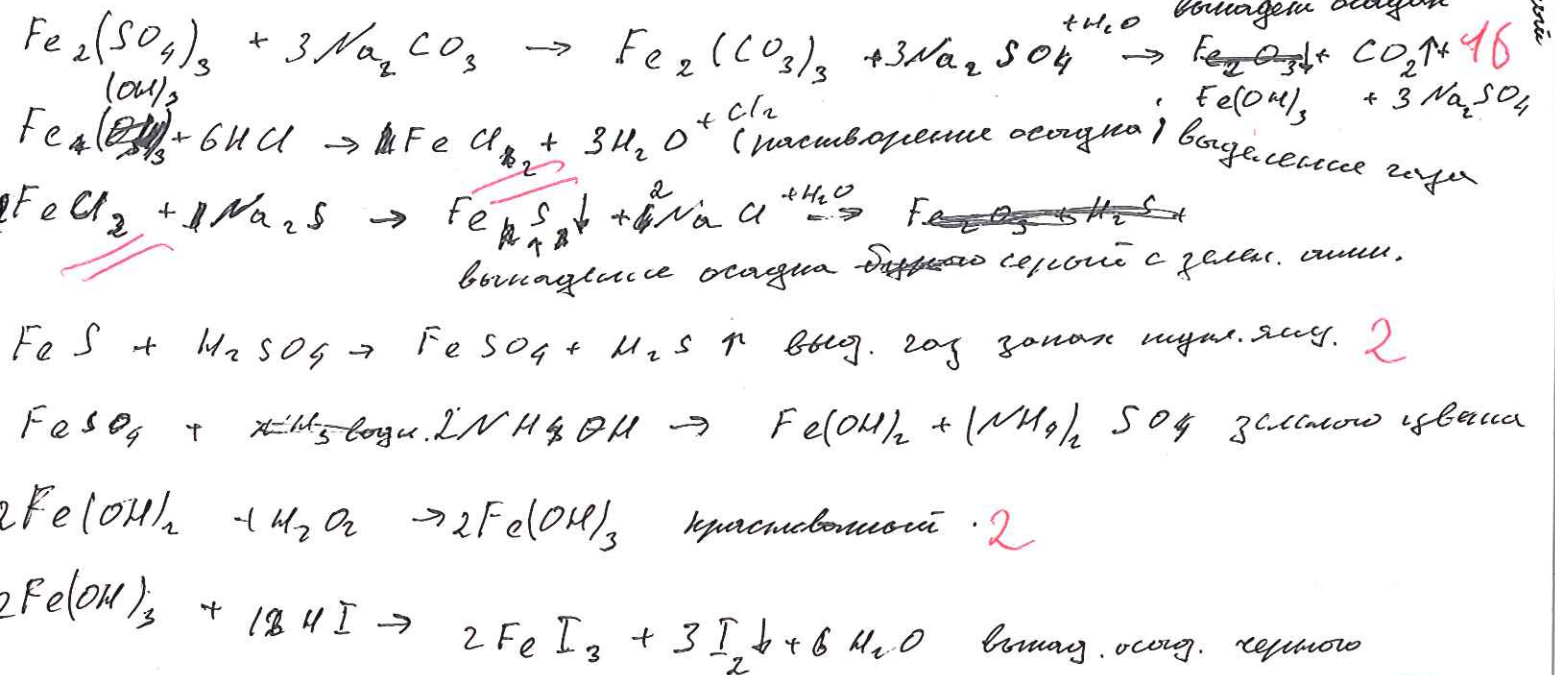 выпадет осадок
Fe₂(SO₄)₃ + 3Na₂CO₃ → Fe₂(CO₃)₃ + 3Na₂SO₄ +H₂O → Fe₂O₃↓ + CO₂↑ + 1б
Fe(OH)₃ + 3Na₂SO₄
Fe(OH)₃ + 6HCl → FeCl₂ + 3H₂O + Cl₂ (растворение осадка, выделение газа
FeCl₂ + Na₂S → FeS↓ + 2NaCl +H₂O → Fe₂O₃ + H₂S +
выпадение осадка бурого серый с зелен.
FeS + H₂SO₄ → FeSO₄ + H₂S ↑ выд. газ запах тухл. яиц. 2
FeSO₄ + 2NH₄OH → Fe(OH)₂ + (NH₄)₂SO₄ зеленого цвета
2Fe(OH)₂ + H₂O₂ → 2Fe(OH)₃ 2
2Fe(OH)₃ + HI → 2FeI₃ + 3I₂↓ + 6H₂O выпад. осад. черного